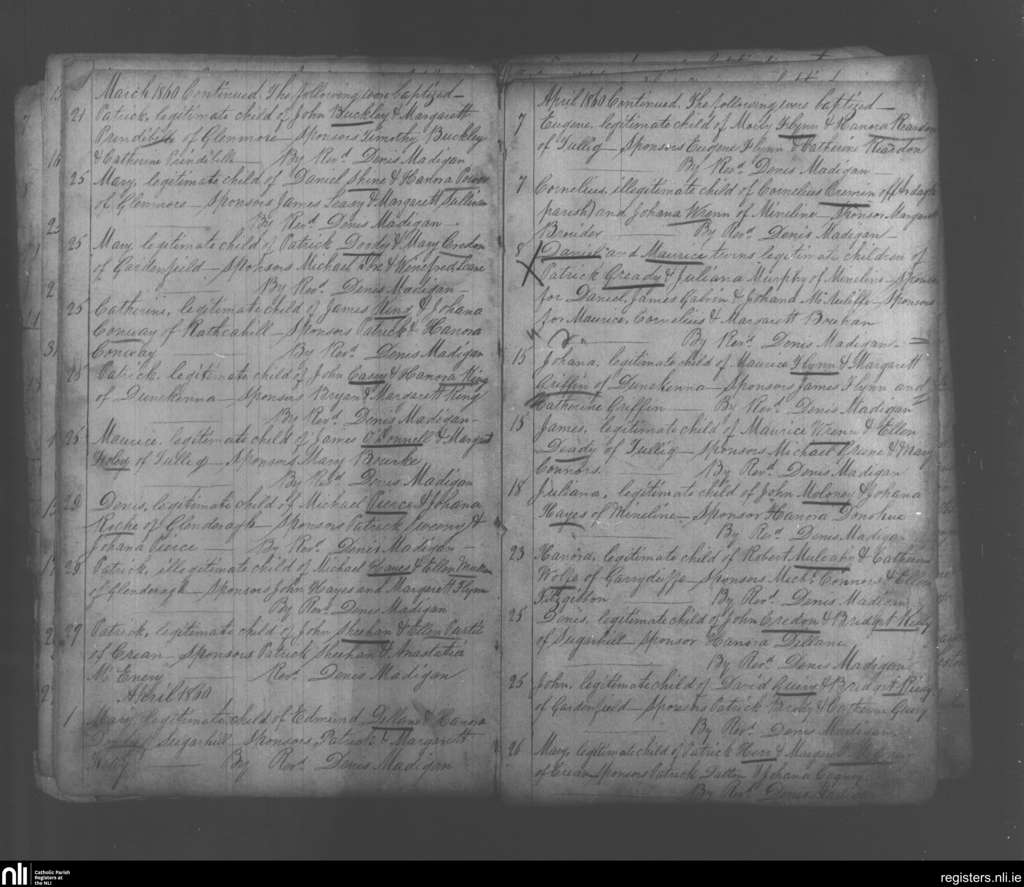 March 1860 Continued. The following were baptized—
21 Patrick, legitimate child of John Buckley & Margarett
Prendibille of Glenmore— Sponsors Timothy Buckley
& Catherine Prendibille— By Revd. Denis Madigan
25 Mary, legitimate child of Daniel Shine & Hanora
of Glenmore— Sponsors James Leary & Margarett Sullivan
By Revd. Denis Madigan—
25 Mary, legitimate child of Patrick Doody & Mary Credon
of Gardenfeild— Sponsors Michael & Winefred
By Revd. Denis Madigan—
25 Catherine, legitimate child of James King & Johana
Conway of Rathcahill— Sponsors Patrick & Hanora
Conway— By Revd. Denis Madigan
25 Patrick, legitimate child of John Casey & Hanora King
of Dunekenna— Sponsors Bryan & Margarett King
By Revd. Denis Madigan—
25 Maurice, legitimate child of James O'Connell & Margt
of Tullig— Sponsors Mary Bourke
By Revd. Denis Madigan
28 Denis, legitimate child of Michael Pierce & Johana
Roche of Glenderagh— Sponsors Patrick &
Johana Pierce— By Revd. Denis Madigan—
28 Patrick, illegitimate child of Michael & Ellen
of Glenderagh— Sponsors John Hayes and Margarett Flynn
By Revd. Denis Madigan
29 Patrick, legitimate child of John Sheehan & Ellen
of Creean— Sponsors Patrick Sheehan & Anastatia
McEnery— Revd. Denis Madigan
April 1860
1 Mary, legitimate child of Edmund Dillane & Hanora
of Sugarhill— Sponsors, Patrick & Margarett
By Revd. Denis Madigan
April 1860 Continued. The following were baptized—
7 Eugene, legitimate child of Morty Flynn & Hanora Reardon
of Tullig— Sponsors Eugene Flynn & Catherine Reardon
By Revd. Denis Madigan—
7 Cornelius, illegitimate child of Cornelius Cremin off Ardagh
parish) and Johana Wrenn of Mineline— Sponsor Margarett
Broider— By Revd. Denis Madigan—
8 Daniel and Maurice twins legitimate children of
Patrick Gready & Juliana Murphy of Mineline— Sponsors
for Daniel, James Galvin & Johana McAuliffe— Sponsors
for Maurice, Cornelius & Margarett Bouhan
By Revd. Denis Madigan.—
15 Johana, legitimate child of Maurice Flynn & Margarett
Griffin of Dunekenna— Sponsors James Flynn and
Catherine Griffin— By Revd. Denis Madigan
15 James, legitimate child of Maurice Wrenn & Ellen
Deady of Tullig— Sponsors Michael & Mary
Connors. By Revd. Denis Madigan
18 Juliana, legitimate child of John Moloney & Johana
Hayes of Mineline— Sponsor Hanora Donohue
By Revd. Denis Madigan
23 Hanora, legitimate child of Robert Mulcahy & Catherine
Wolfe of Garryduffe— Sponsors Michl. Connors & Ellen
Fitzgibbon By Revd. Denis Madigan
25 Denis, legitimate child of John Credon & Bridget Healy
of Sugarhill— Sponsor Hanora Dillane
By Revd. Denis Madigan
25 John, legitimate child of David Guiry & Bridget
of Gardenfield— Sponsors Patrick & Catherine Guiry
By Revd. Denis Madigan
26 Mary, legitimate child of Patrick & Margarett
of Creean Sponsors Patrick & Johana Cagney
By Revd. Denis Madigan
nli Catholic Parish
Registers at
the NLI
registers.nli.ie